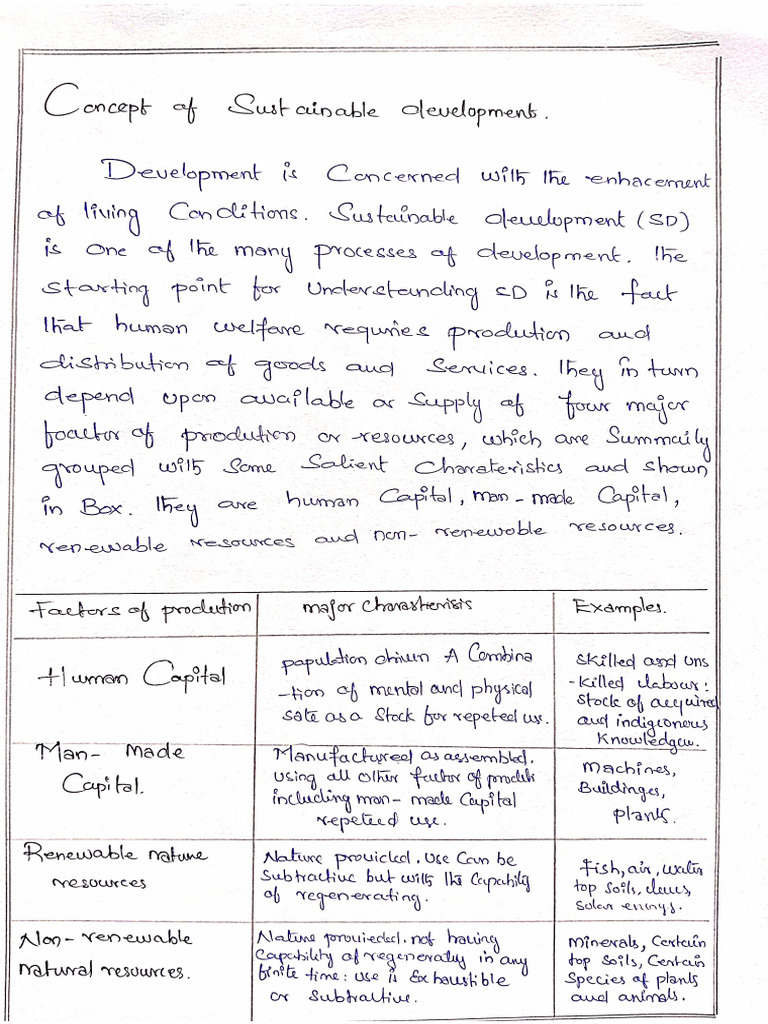 Concept of Sustainable development.
Development is Concerned with the enhacement
of living Conditions. Sustainable development (SD)
is one of the many processes of development. The
starting point for understanding SD is the fact
that human welfare requries prodution and
distribution of goods and Services. They in turn
depend upon available or Supply of four major
foactor of prodution or resources, which are Summaily
grouped with Some Salient Charateristics and shown
in Box. They are human Capital, man-made Capital,
renewable resources and non-renewoble resources.
Factors of prodution
major Charasterisis
Examples.
Human Capital
population driven A Combina
-tion of mental and physical
sate as a Stock for repeted us.
Skilled and uns
-killed labour:
Stock of acquired
and indigionous
Knowledgeu.
Man- made
Capital.
Manufactured as assembled.
Using all other factor of produti
including man-made Capital
repeteed use.
Machines,
Buildinges,
plants.
Renewable nature
resources
Nature provided. Use Can be
Subtractive but with the Capability
of regenerating.
Fish, air, water
top Soils,
Solar energys.
Non-renewable
natural resources.
Nature provieded. not having
Capability of regeneratiy in any
finite time: use is Exhaustible
or Subtractive.
Minerals, Certain
top Soils, Certain
Species of plants
and animals.